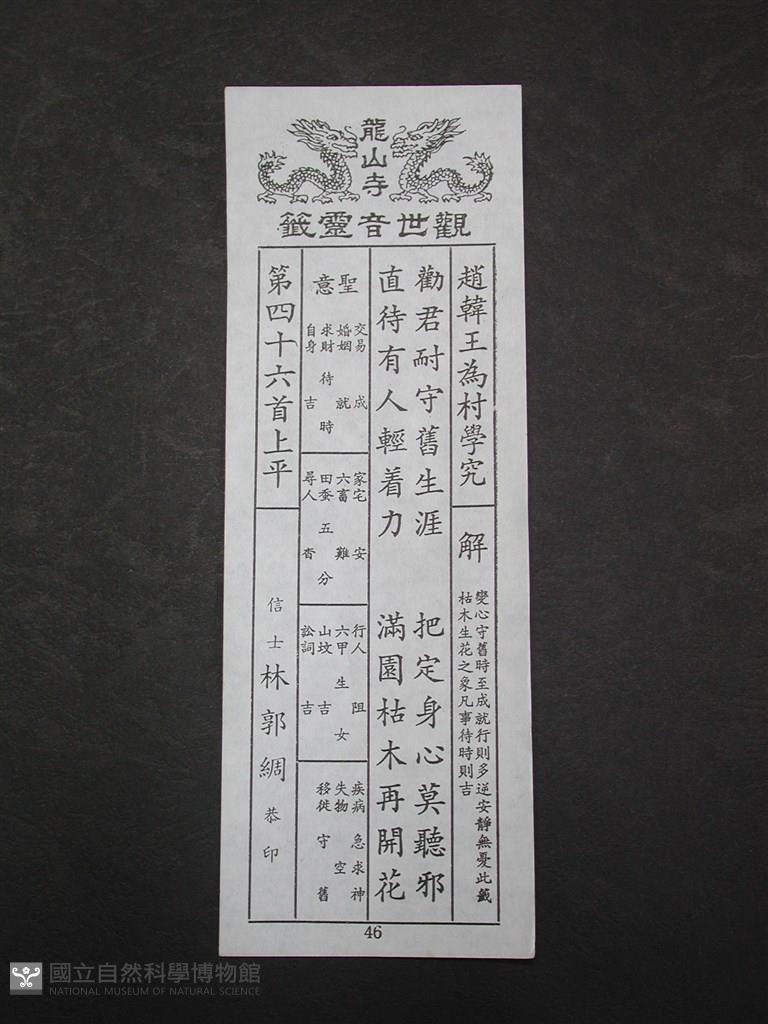 龍山寺
觀世音靈籤
趙韓王為村學究
解
變心守舊時至成就行則多逆安靜無憂此籤
枯木生花之象凡事待時則吉
勸君耐守舊生涯 把定身心莫聽邪
直待有人輕着力 滿園枯木再開花
聖意
交易 成
婚姻 就
求財 待時
自身 吉
家宅 安
六畜 難
田蚕 五分
尋人 杳
行人 阻
六甲 生女
山坟 吉
訟詞 吉
疾病 急求神
失物 空
移徙 守舊
第四十六首上平
信士 林郭綢 恭印
46
國立自然科學博物館
NATIONAL MUSEUM OF NATURAL SCIENCE